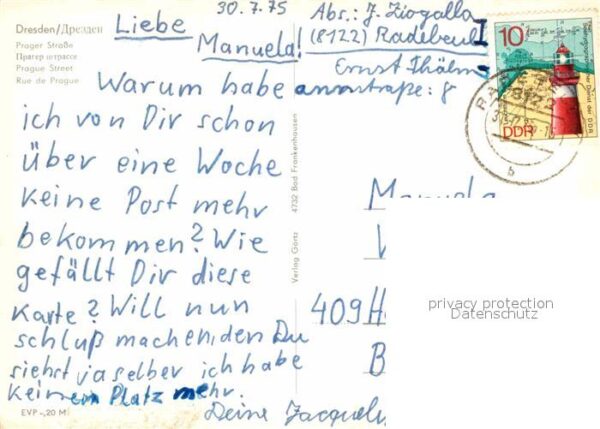 30.7.75
Abs.: J. Ziogalla
(8122) Radebeul I
Ernst Thälm-
annstraße: 8
Dresden/Дрезден
Prager Straße
Прагер штрассе
Prague Street
Rue de Prague
Liebe
Manuela!
Warum habe
ich von Dir schon
über eine Woche
keine Post mehr
bekommen? Wie
gefällt Dir diese
Karte? Will nun
schluß machen, den Du
siehst ja selber ich habe
keinen Platz mehr.
Deine Jacquel
EVP -,20 M
Verlag Görtz 4732 Bad Frankenhausen
Manuela
409 H
B
10
DDR
8122
b
privacy protection
Datenschutz